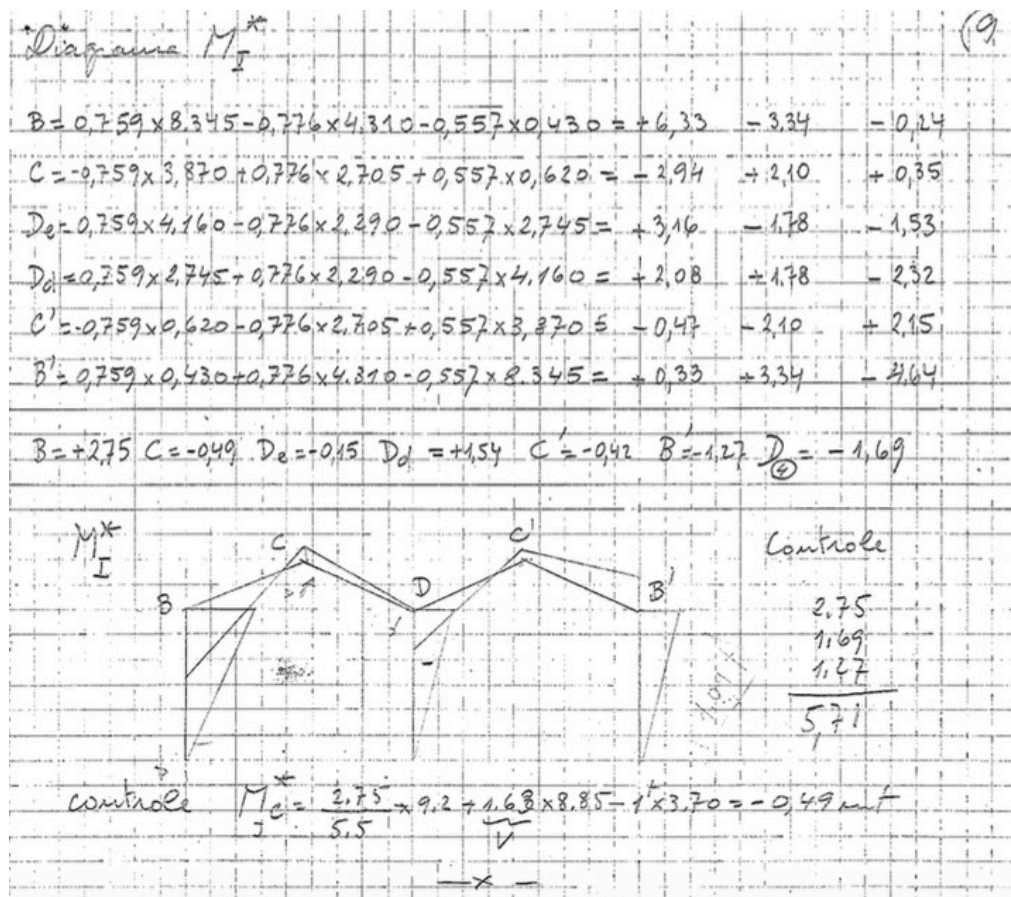 Diagrama M*I (9
B = 0,759 x 8.345 - 0,776 x 4.310 - 0,557 x 0,430 = + 6,33 - 3,34 - 0,24
C = -0,759 x 3,870 + 0,776 x 2,705 + 0,557 x 0,620 = - 2,94 + 2,10 + 0,35
De = 0,759 x 4,160 - 0,776 x 2,290 - 0,557 x 2,745 = + 3,16 - 1,78 - 1,53
Dd = 0,759 x 2,745 + 0,776 x 2,290 - 0,557 x 4,160 = + 2,08 + 1,78 - 2,32
C' = -0,759 x 0,620 - 0,776 x 2,705 + 0,557 x 3,870 = - 0,47 - 2,10 + 2,15
B' = 0,759 x 0,430 + 0,776 x 4.310 - 0,557 x 8.345 = + 0,33 + 3,34 - 4,64
B = +2,75 C = -0,49 De = -0,15 Dd = +1,54 C' = -0,42 B' = -1,27 D④ = - 1,69
M*I
C
C'
Controle
B
D
B'
2.75
1,69
1,27
5,71
controle M*Ic = 2.75/5.5 x 9.2 + 1.63 x 8.85 - 1t x 3.70 = - 0,49 mt
V
— x —